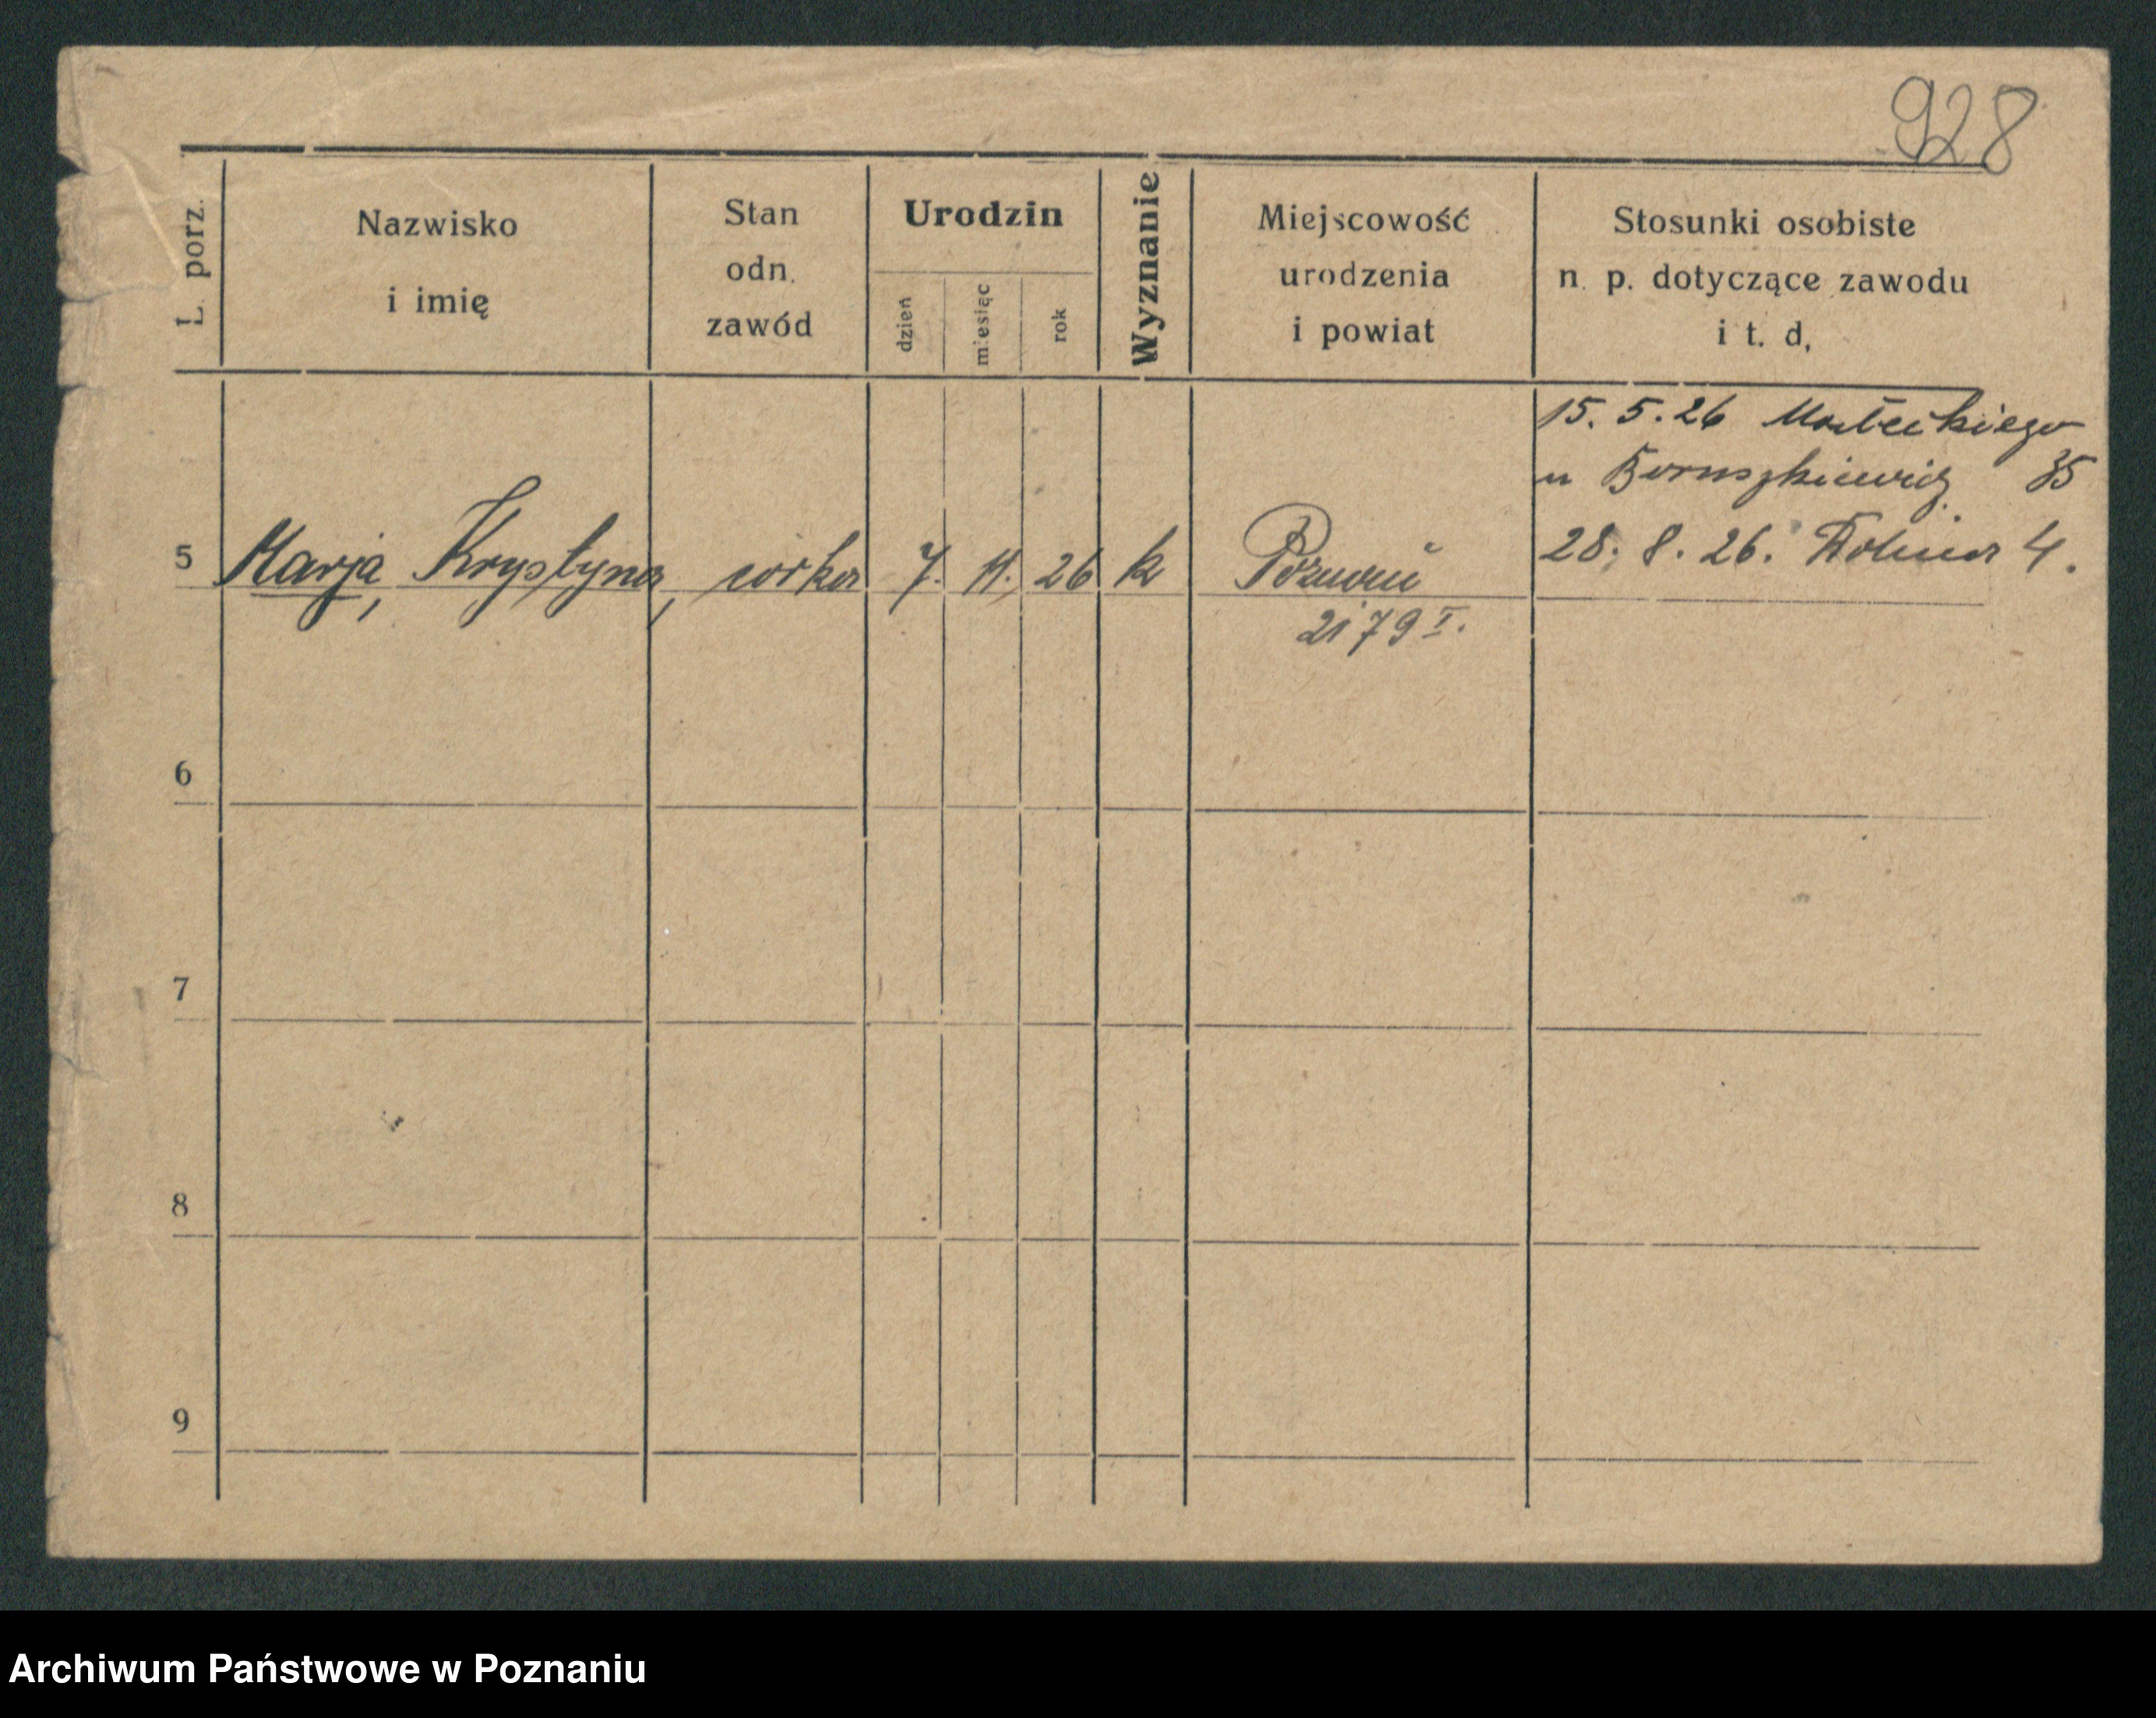 928
L. porz.
Nazwisko
i imię
Stan
odn.
zawód
Urodzin
dzień
miesiąc
rok
Wyznanie
Miejscowość
urodzenia
i powiat
Stosunki osobiste
n. p. dotyczące zawodu
i t. d.
15. 5. 26 Małeckiego
u Boruszkiewicz 35
28. 8. 26. Dolina 4.
5 Marja, Krystyna, córka 7. 11. 26 k Poznań
2179 I.
6
7
8
9
Archiwum Państwowe w Poznaniu